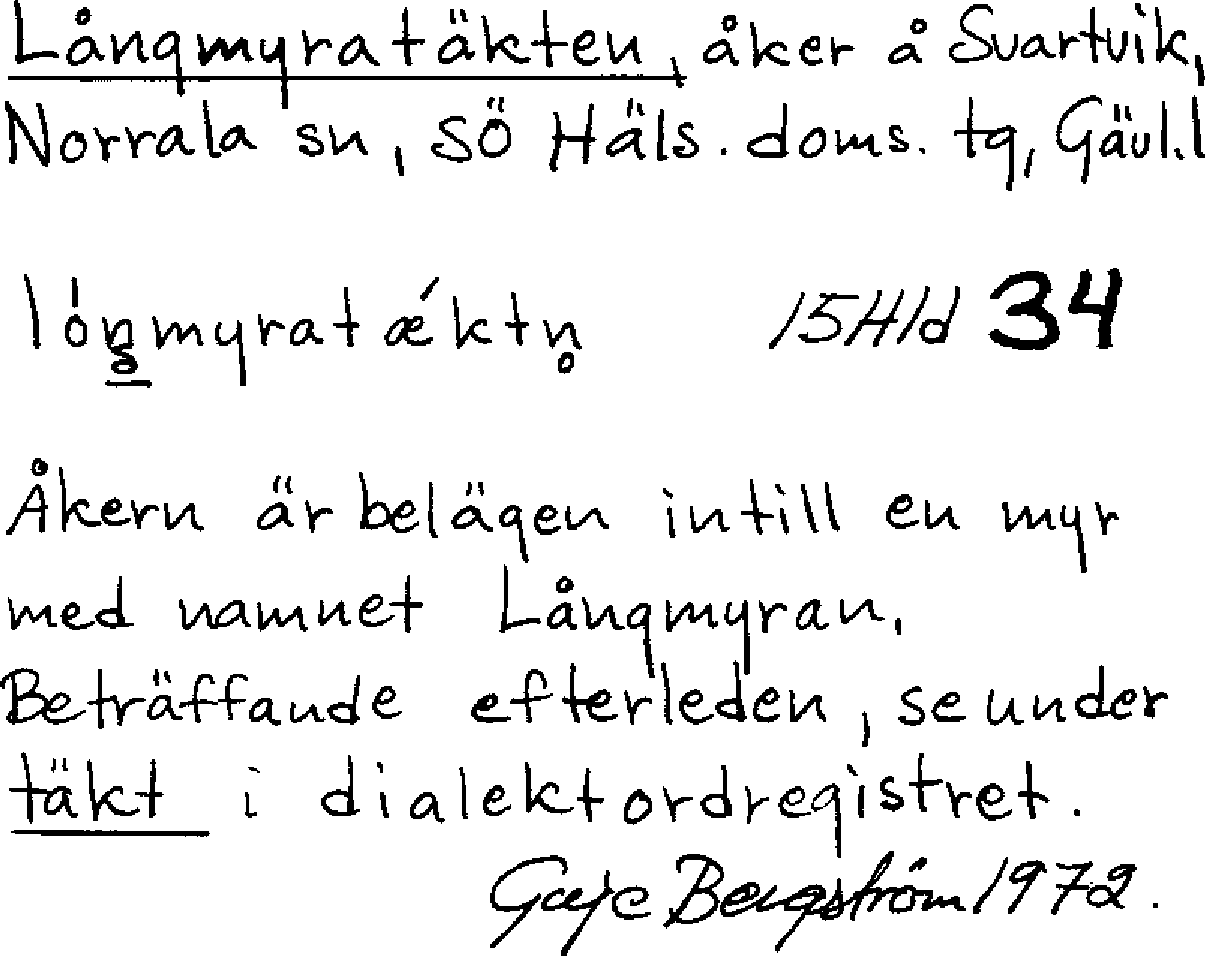 Långmyratäkten, åker å Svartvik,
Norrala sn, SÖ Häls. doms. tg, Gävl.l
lóŋmyratǽktn̥ 15H1d 34
Åkern är belägen intill en myr
med namnet Långmyran.
Beträffande efterleden, se under
täkt i dialektordregistret.
Bergström 1972.